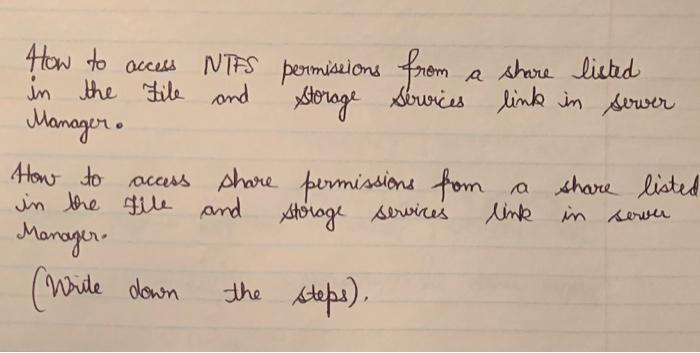 How to access NTFS permissions from a share listed
in the File and Storage Services link in server
Manager.
How to access share permissions from a share listed
in the File and storage services link in server
Manager.
(Write down the steps).